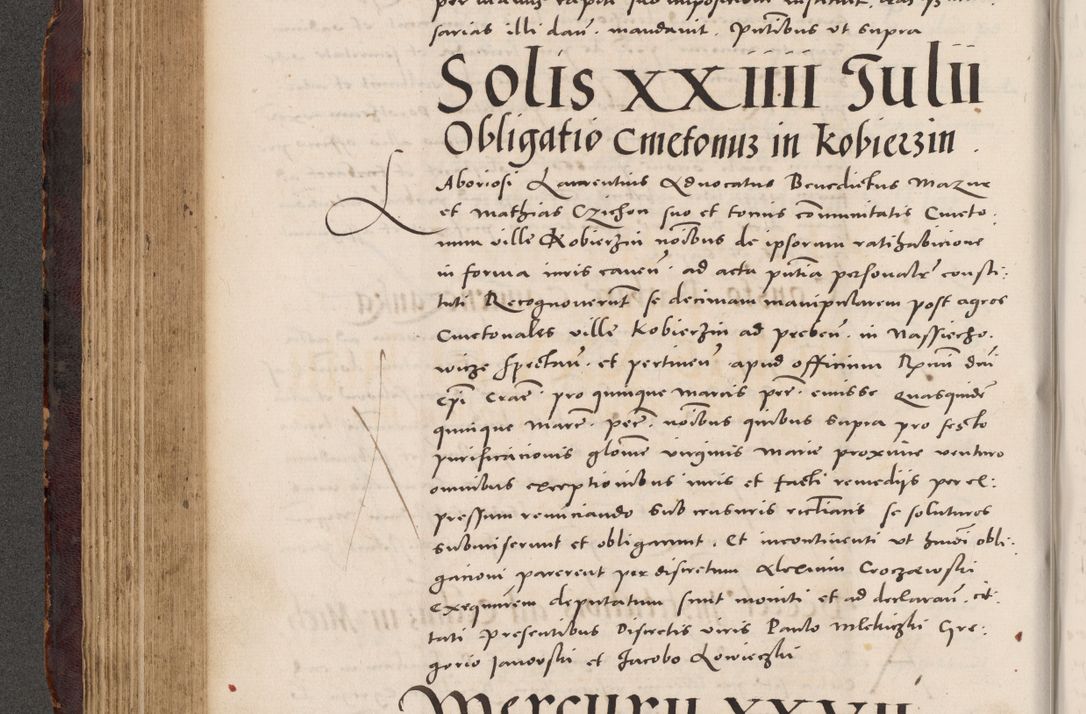 sarias illi dań. mandavit. Pntibus ut supra
Solis XXIIII Julii
Obligatio Cmetonuʒ in Kobierzin.
Laboriosi Laurentius Advocatus Benedictus Mazur
et Mathias Czichon suo et totius cōmunitatis Cmeto.
num ville Kobierzin noībus de ipsorum ratihabicione
in forma iuris caueń. ad acta pn̄tia personalr̄ consti:
tuti Recognoverunt se decimam manipularem post agros
Cmetonales ville Kobierzin ad prebeń. in Nassiecho.
wicze et pertineń. apud officium Rx̄mi dn̄i
Ep̄i Craē. pro quinque marcis peč. emisse Quasquidē
quinque Marč. peč. noībus quibus supra pro festo
purificacionis glōse virginis Marie proxime venturo
omnibus exceptionibus iuris et facti remediis per el:
pressum renunciando sub censuris ecclīacis se soluturos
submiserunt et obligarunt. Et incontinenti ut hm̄oī obli:
gationi parerent per discretum Alexium Croczewski
Exequutem deputatum sunt moniti et ad declarań. cit:
tati Presentibus Discretis viris Paulo Mlekiczki Gre:
gorio Janovski et Jacobo Lowieczki
Mercurii XXVII